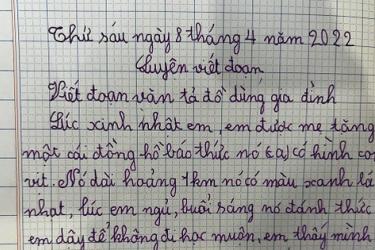 Thứ sáu ngày 8 tháng 4 năm 2022
Luyện viết đoạn
Viết đoạn văn tả đồ dùng gia đình
Lúc xinh nhật em, em được mẹ tăng
một cái đồng hồ báo thức nó (ạ) có hình con
vit. Nó dài hoảng 7km nó có màu xanh lá
nhat, lúc em ngủ, buổi sáng nó đánh thức
em dây để không đi học muôn, em thây mình